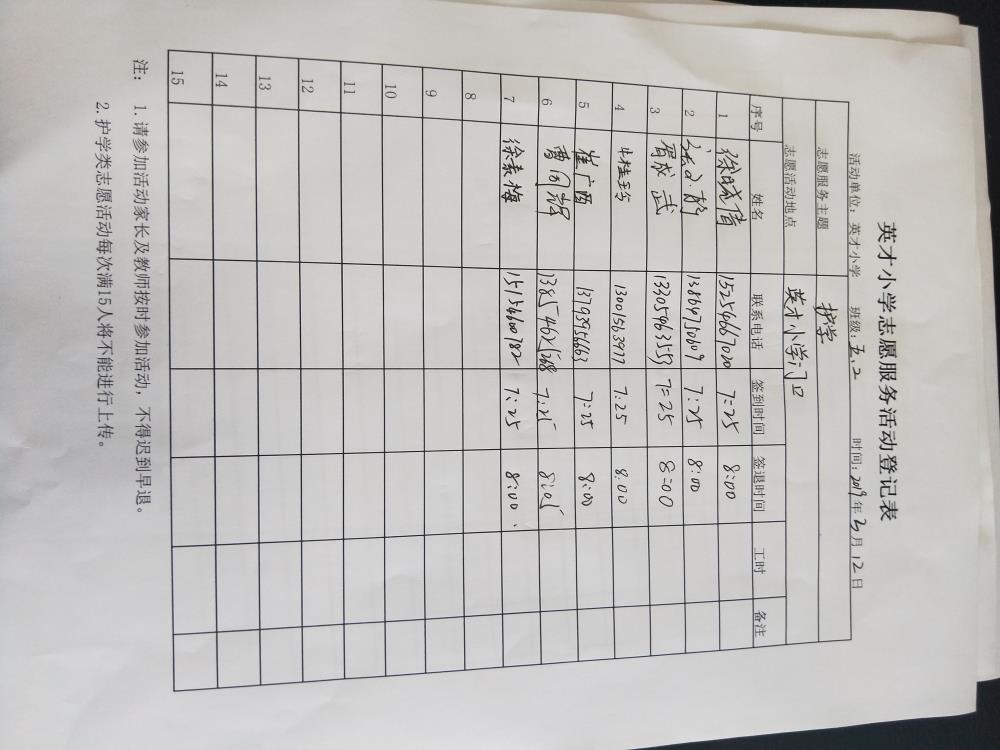 英才小学志愿服务活动登记表
活动单位：英才小学 班级：五.2 时间：2019年3月12日
志愿服务主题 护学
志愿活动地点 英才小学门口
序号 姓名 联系电话 签到时间 签退时间 工时 备注
1 徐晓倩 15254667020 7:25 8:00
2 静 13864750609 7:25 8:00
3 周成武 13305463553 7:25 8:00
4 牛桂 13001563977 7:25 8:00
5 崔广西 13793995663 7:25 8:00
6 曹同 7:25 8:05
7 徐素梅 15154600782 7:25 8:00
8
9
10
11
12
13
14
15
注： 1.请参加活动家长及教师按时参加活动，不得迟到早退。
2.护学类志愿活动每次满15人将不能进行上传。